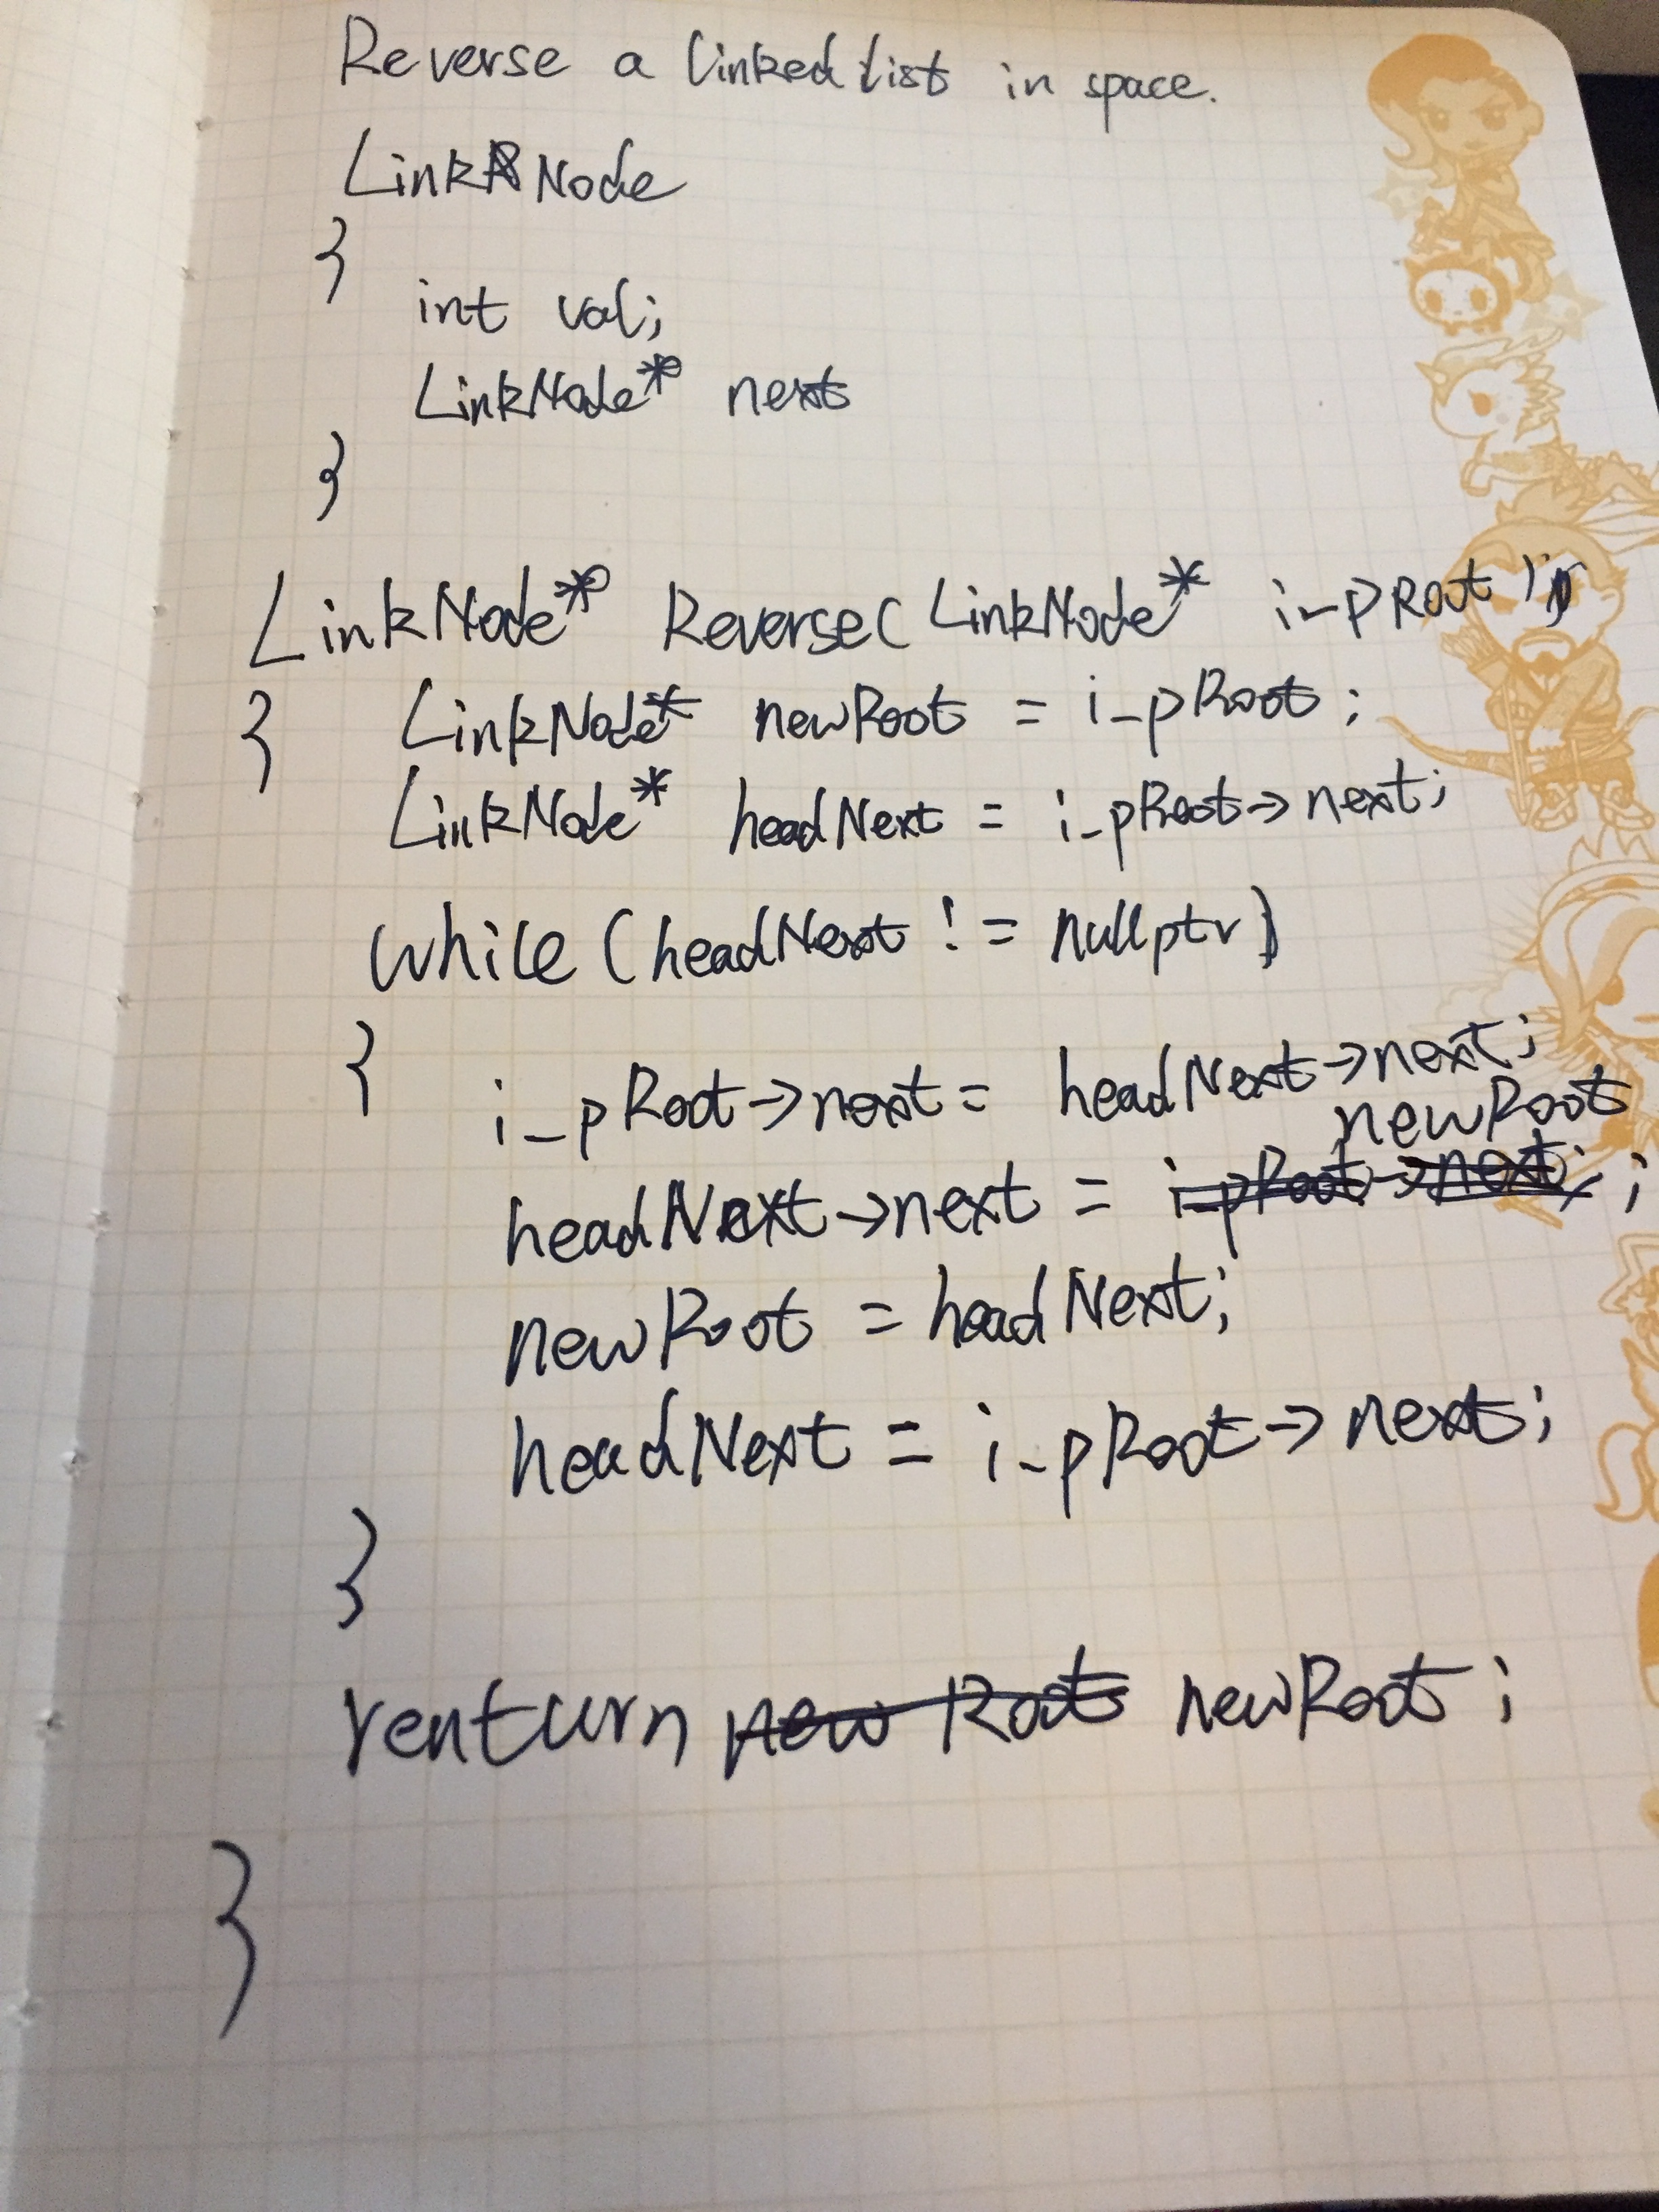 Reverse a linked list in space.
Link Node
{
int val;
LinkNode* next
}
LinkNode* Reverse( LinkNode* i_pRoot )
{ LinkNode* newRoot = i_pRoot ;
LinkNode* headNext = i_pRoot->next;
while (headNext != nullptr)
{ i_pRoot->next = headNext->next;
newRoot
headNext->next = i_pRoot->next; ;
newRoot = headNext;
headNext = i_pRoot->next;
}
renturn new Root newRoot ;
}